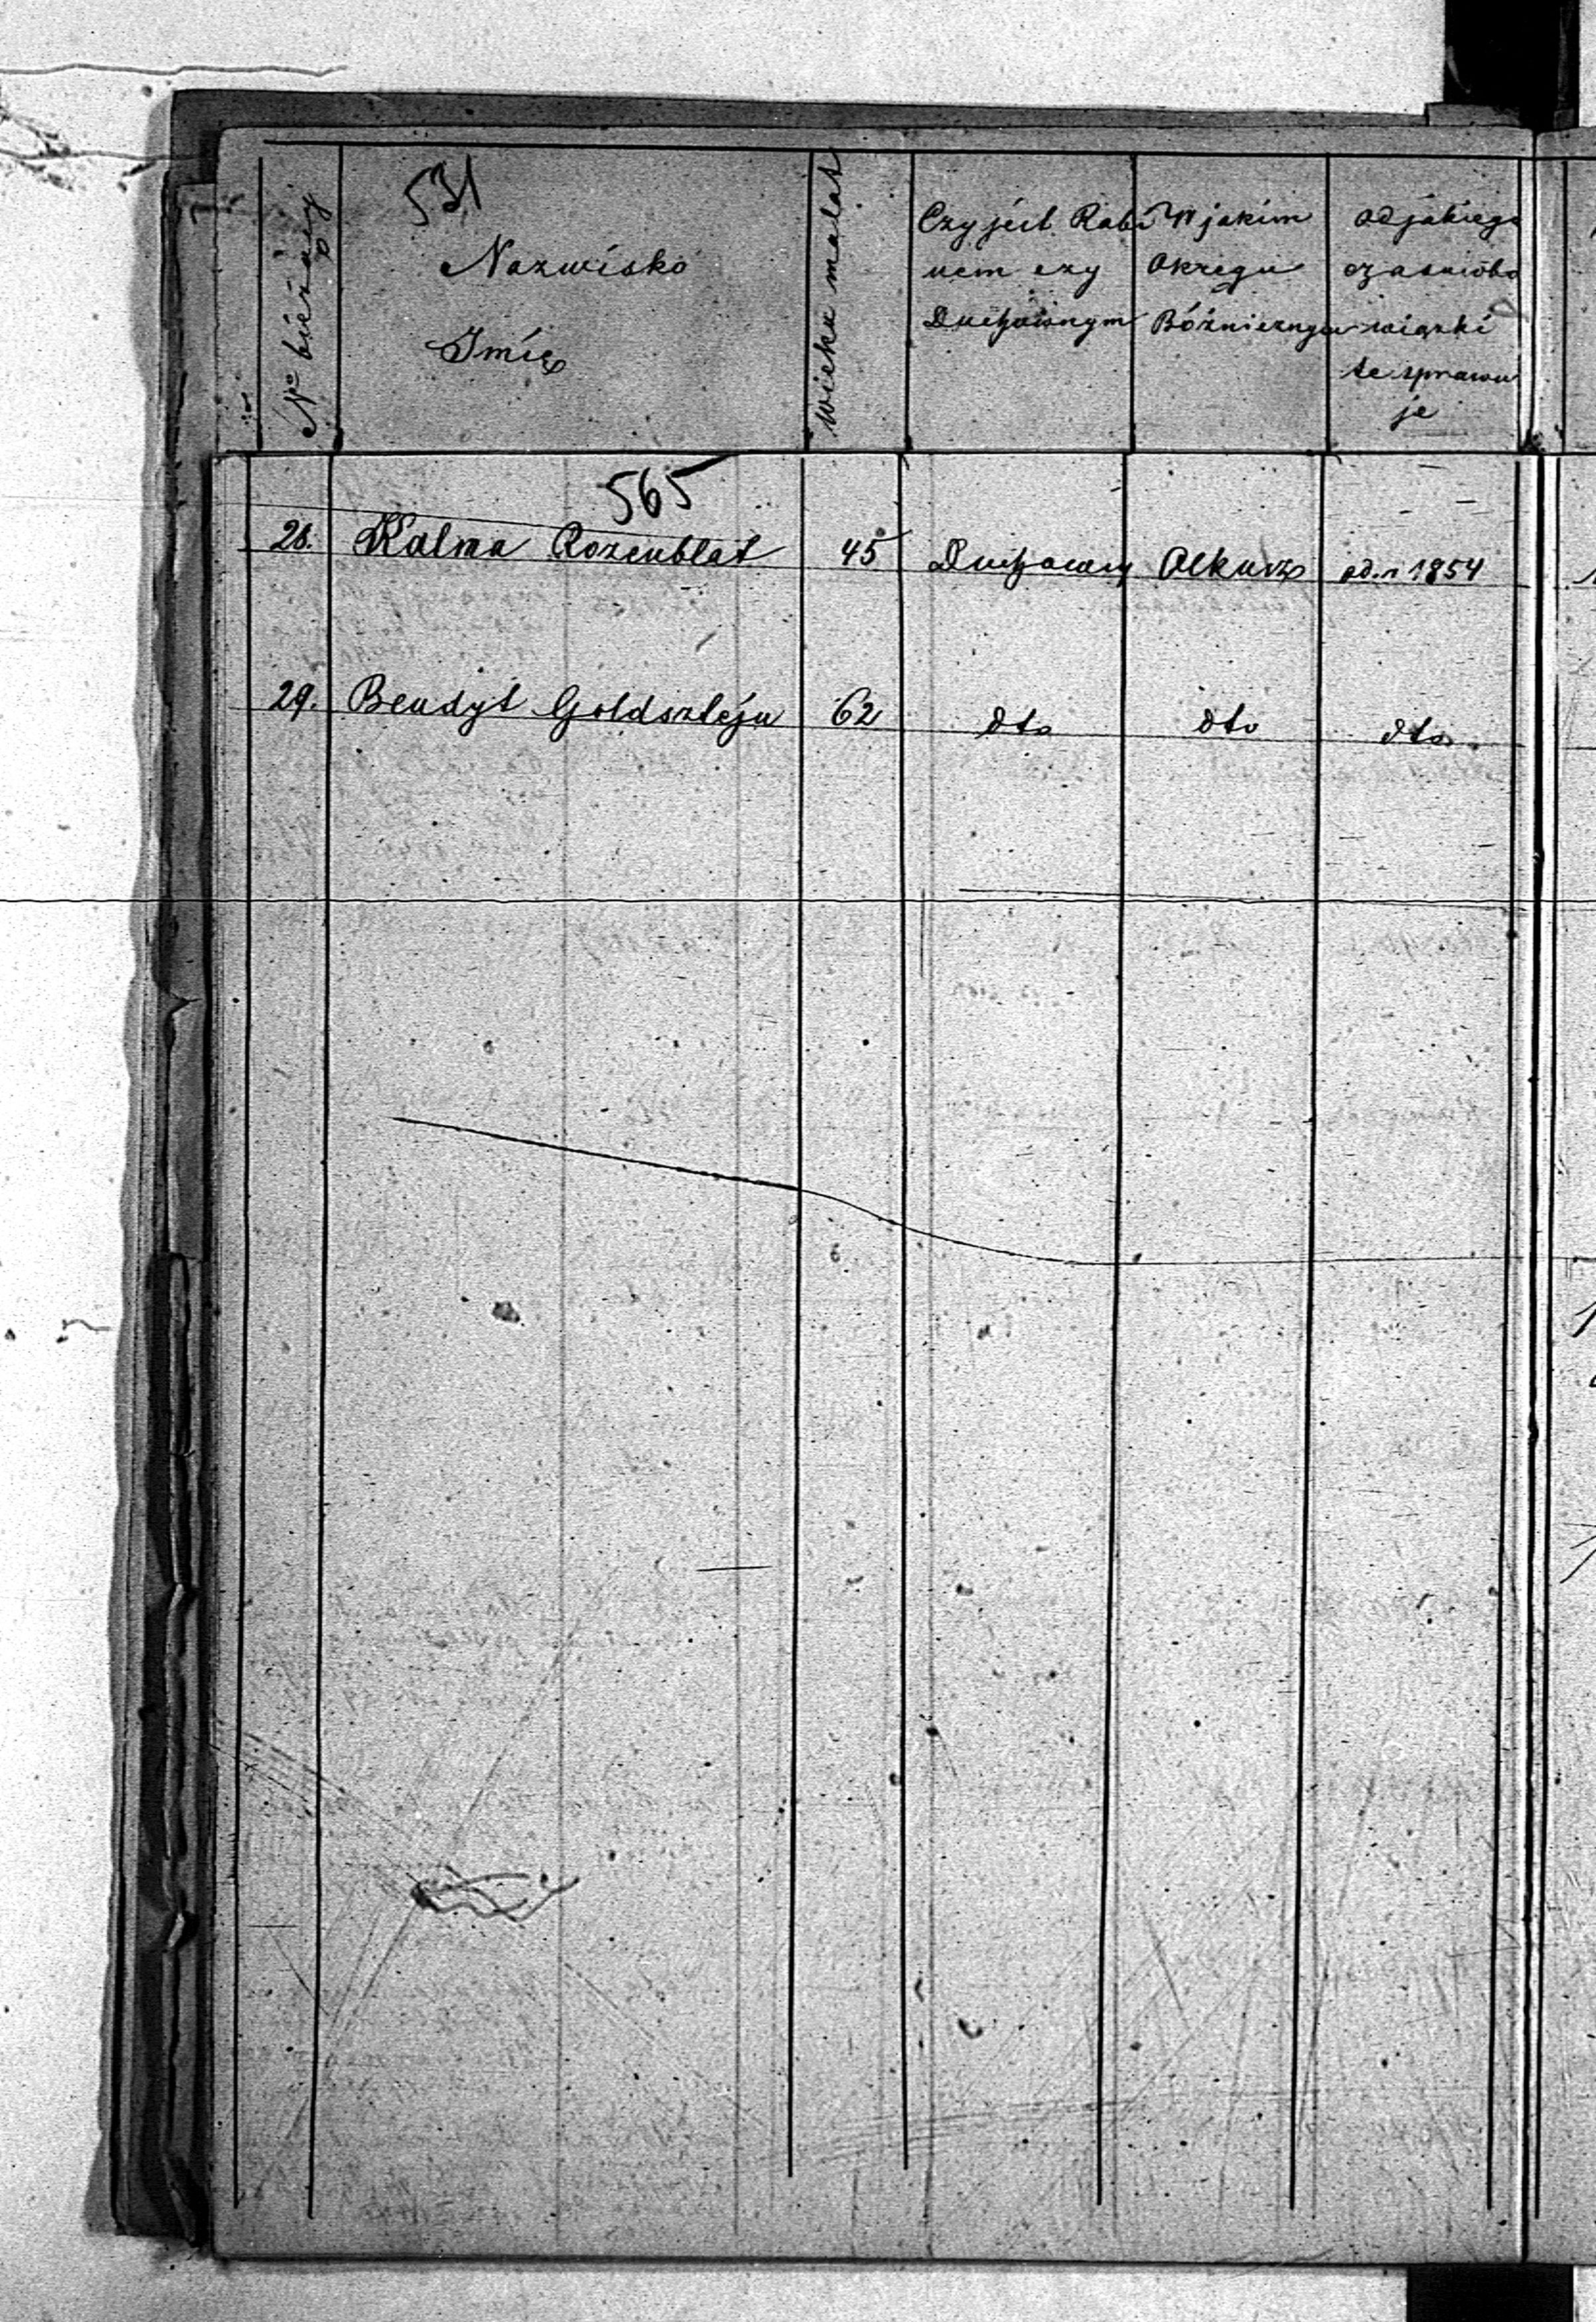 531
Nº bieżący
Nazwisko
Imię
wieku ma lat
Czy jest Rabi
nem czy
Duchownym
W jakim
Okręgu
Bóżniczny
od jakiego
czasu obo
wiązki
te sprawu
je
565
28. Kalma Rozenblat 45 Duchowny Olkusz od r 1854
29. Bendyt Goldsztejn 62 dto dto dto